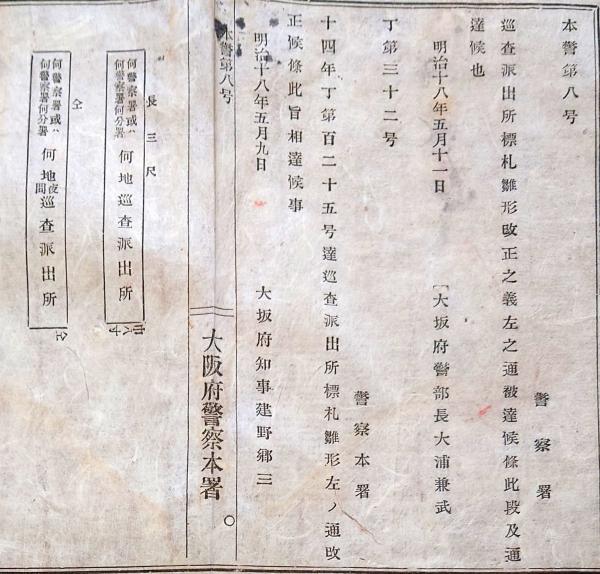 本警第八号
警察署
巡査派出所標札雛形改正之義左之通被達候條此段及通
達候也
明治十八年五月十一日
大坂府警部長大浦兼武
丁第三十二号
警察本署
十四年丁第百二十五号達巡査派出所標札雛形左ノ通改
正候條此旨相達候事
明治十八年五月九日
大坂府知事建野郷三
本警第八号
大阪府警察本署
長三尺
何警察署或ハ
何警察署何分署
何地巡査派出所
巾八寸
仝
何警察署或ハ
何警察署何分署
何地夜間巡査派出所
仝